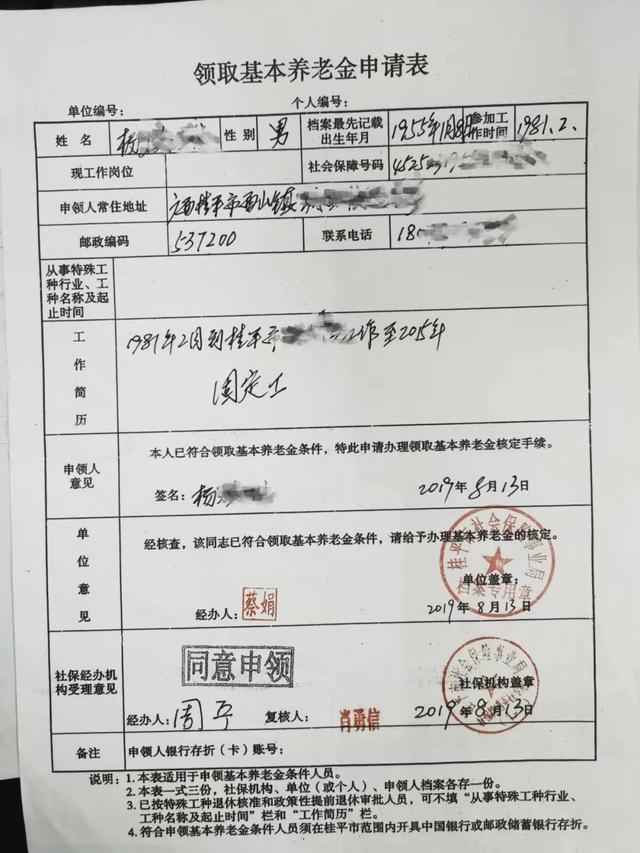 领取基本养老金申请表
单位编号： 个人编号：
姓 名 杨 性 别 男 档案最先记载出生年月 1955年1月8日 参加工作时间 1981.2.
现工作岗位 社会保障号码 4525
申领人常住地址 广西桂平市西山镇
邮政编码 537200 联系电话 18
从事特殊工种行业、工种名称及起止时间
工作简历
1981年2月到桂平市 工作至2015年
固定工
申领人意见
本人已符合领取基本养老金条件，特此申请办理领取基本养老金核定手续。
签名：杨 2019年8月13日
单位意见
经核查，该同志已符合领取基本养老金条件，请给予办理基本养老金的核定。
桂平市社会保险事业局
档案专用章
单位盖章：
经办人：蔡娟 2019年8月13日
社保经办机构受理意见
同意申领
社保机构盖章
经办人：周平 复核人：肖勇信 2019年8月13日
备注 申领人银行存折（卡）账号：
说明：1. 本表适用于申领基本养老金条件人员。
2. 本表一式三份，社保机构、单位（或个人）、申领人档案各存一份。
3. 已按特殊工种退休核准和政策性提前退休审批人员，可不填“从事特殊工种行业、
工种名称及起止时间”栏和“工作简历”栏。
4. 符合申领基本养老金条件人员须在桂平市范围内开具中国银行或邮政储蓄银行存折。